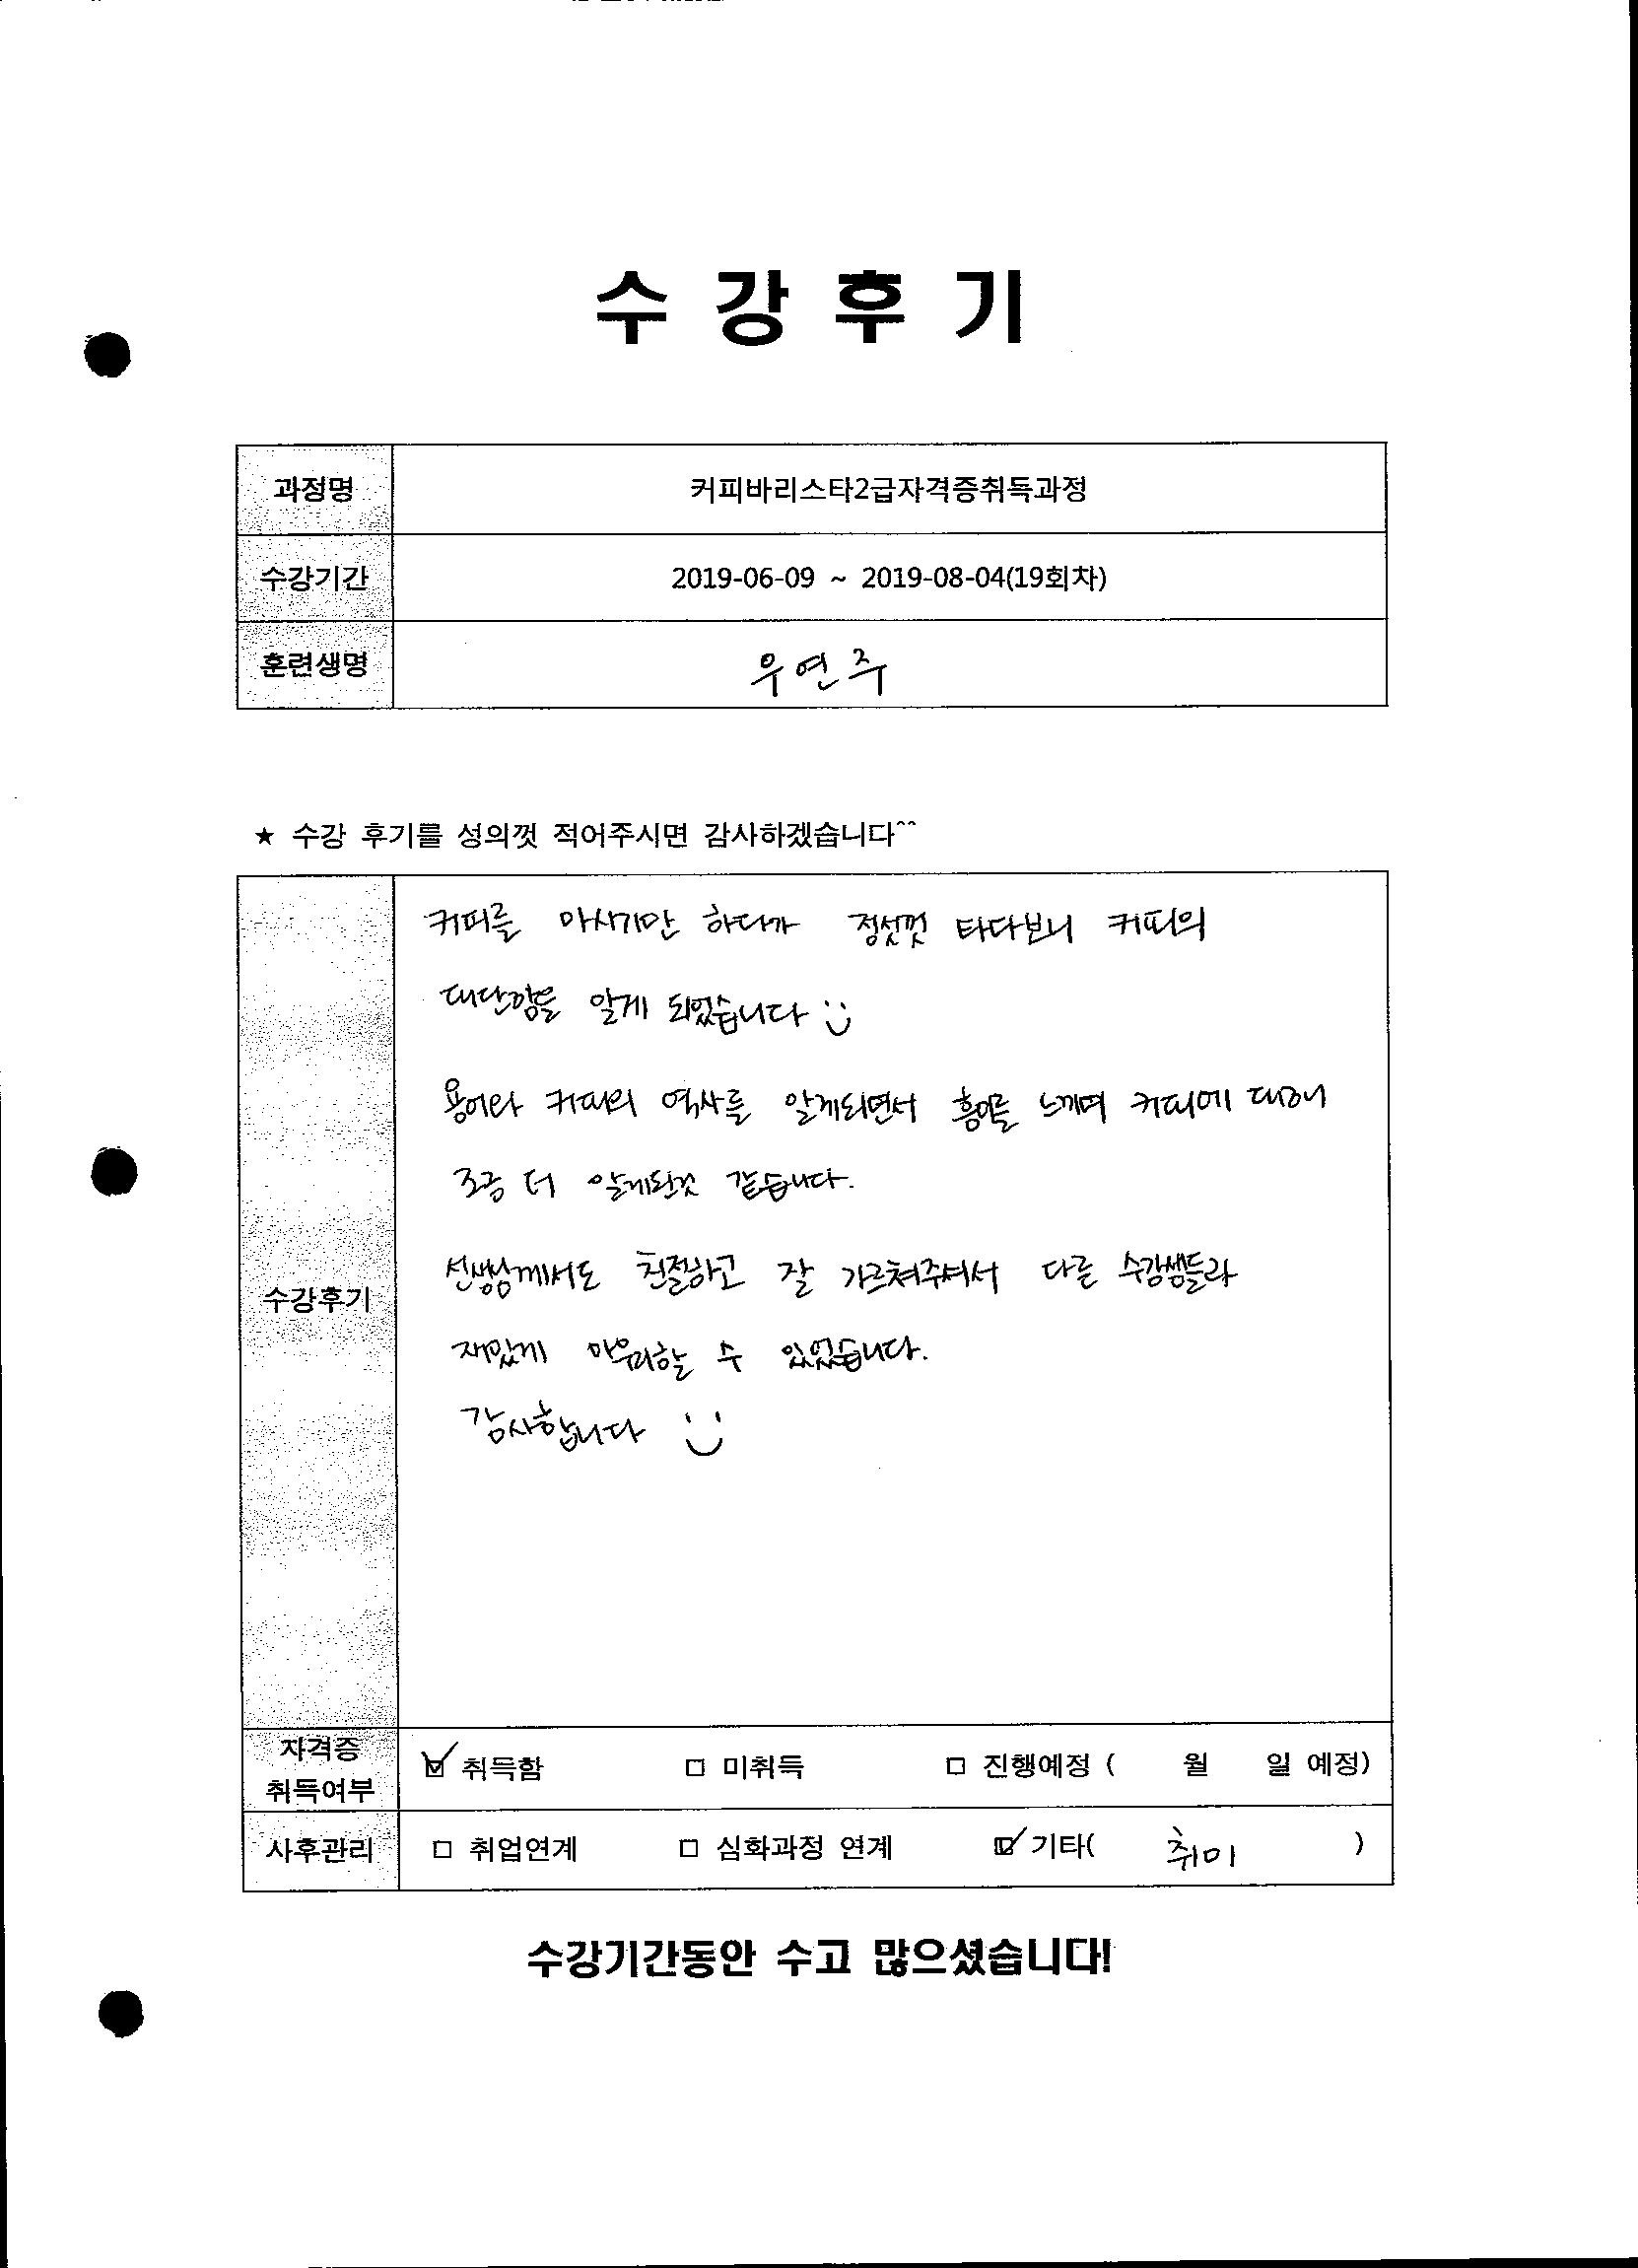 수 강 후 기
과정명 커피바리스타2급자격증취득과정
수강기간 2019-06-09 ~ 2019-08-04(19회차)
훈련생명 우연주
★ 수강 후기를 성의껏 적어주시면 감사하겠습니다^^
커피를 마시기만 하다가 정성껏 타다보니 커피의
대단함을 알게 되었습니다
용어와 커피의 역사를 알게되면서 흥미를 느끼며 커피에 대해
조금 더 알게된것 같습니다.
수강후기
선생님께서도 친절하고 잘 가르쳐주셔서 다른 수강쌤들과
재밌게 마무리할 수 있었습니다.
감사합니다
자격증
취득여부
☑ 취득함 □ 미취득 □ 진행예정 ( 월 일 예정)
사후관리 □ 취업연계 □ 심화과정 연계 ☑ 기타( 취미 )
수강기간동안 수고 많으셨습니다!